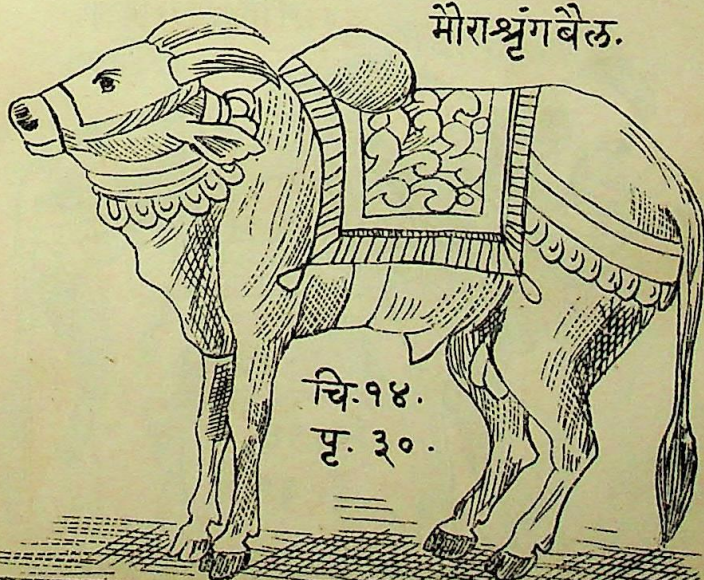 मौराश्रृंग बैल.
चि. १४.
पृ. ३०.